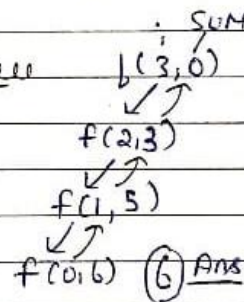 i SUM
f(3,0)
f(2,3)
f(1,5)
f(0,6) 6 Ans